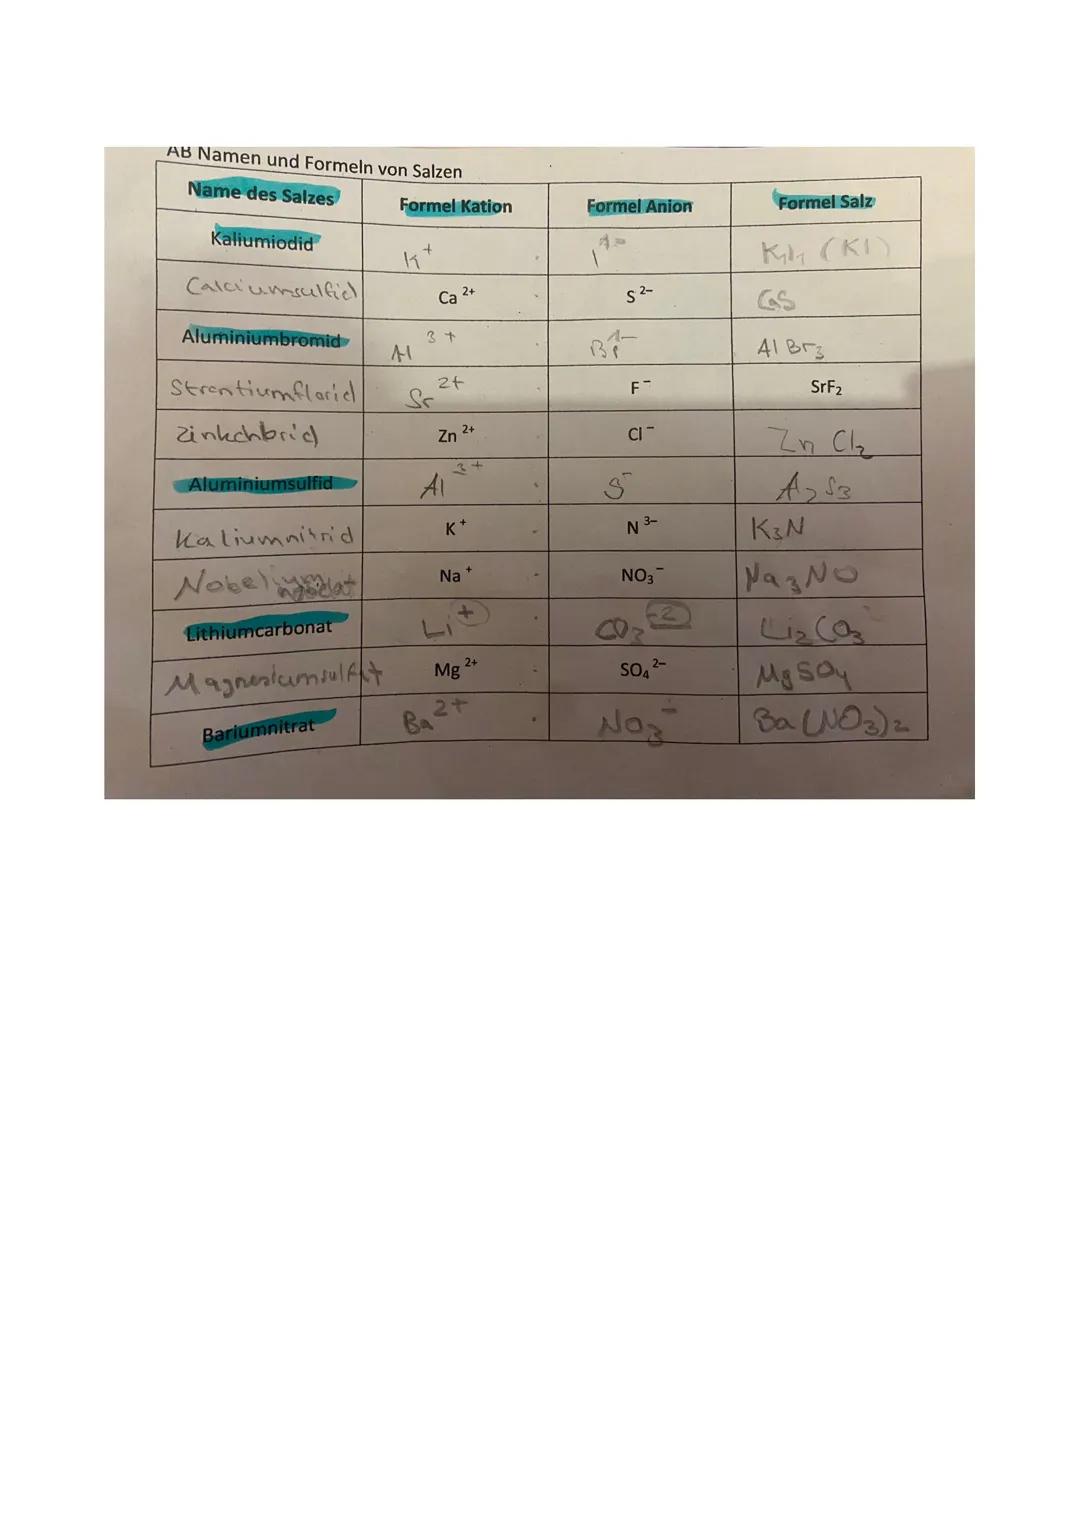 AB Namen und Formeln von Salzen
Name des Salzes Formel Kation Formel Anion Formel Salz
Kaliumiodid K+ I1- K1I1 (KI)
Calciumsulfid Ca 2+ S 2- CaS
Aluminiumbromid Al 3+ Br1- Al Br3
Strontiumflorid Sr 2+ F- SrF2
Zinkchlorid Zn 2+ Cl- Zn Cl2
Aluminiumsulfid Al 3+ S- A2S3
Kaliumnitrid K+ N 3- K3N
Nobelium Na+ NO3- Na3NO
Lithiumcarbonat Li+ CO3-2 Li2CO3
Magnesiumsulfat Mg 2+ SO4 2- MgSO4
Bariumnitrat Ba2+ NO3- Ba(NO3)2